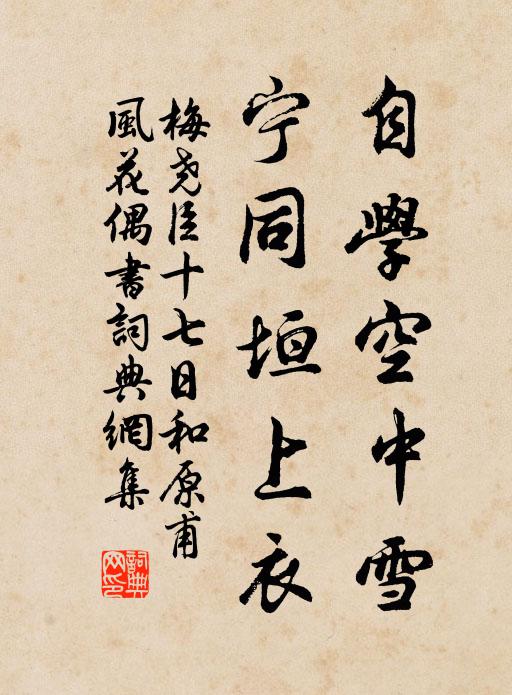 自學空中雪
宁同垣上衣
梅尧臣十七日和原甫
風花偶書詞典網集
詞典网印